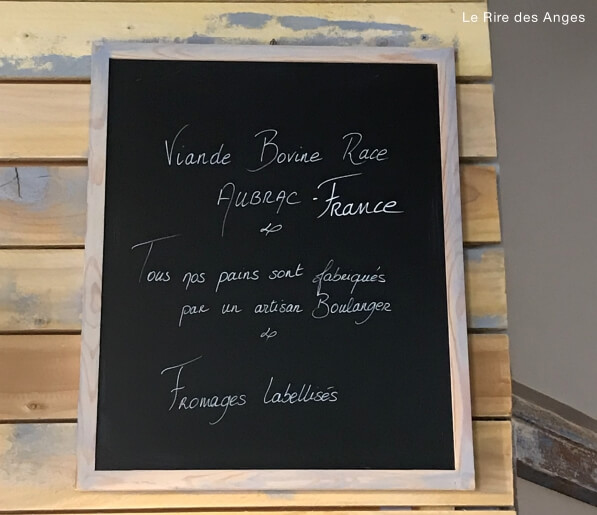 Le Rire des Anges
Viande Bovine Race
AUBRAC - France
Tous nos pains sont fabriqués
par un artisan Boulanger
Fromages Labellisés